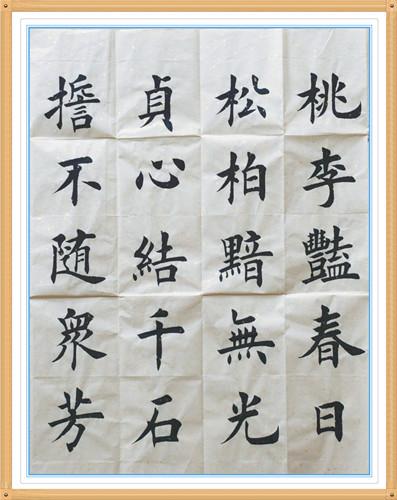 桃李豔春日
松柏黯無光
貞心結千石
擔不随衆芳